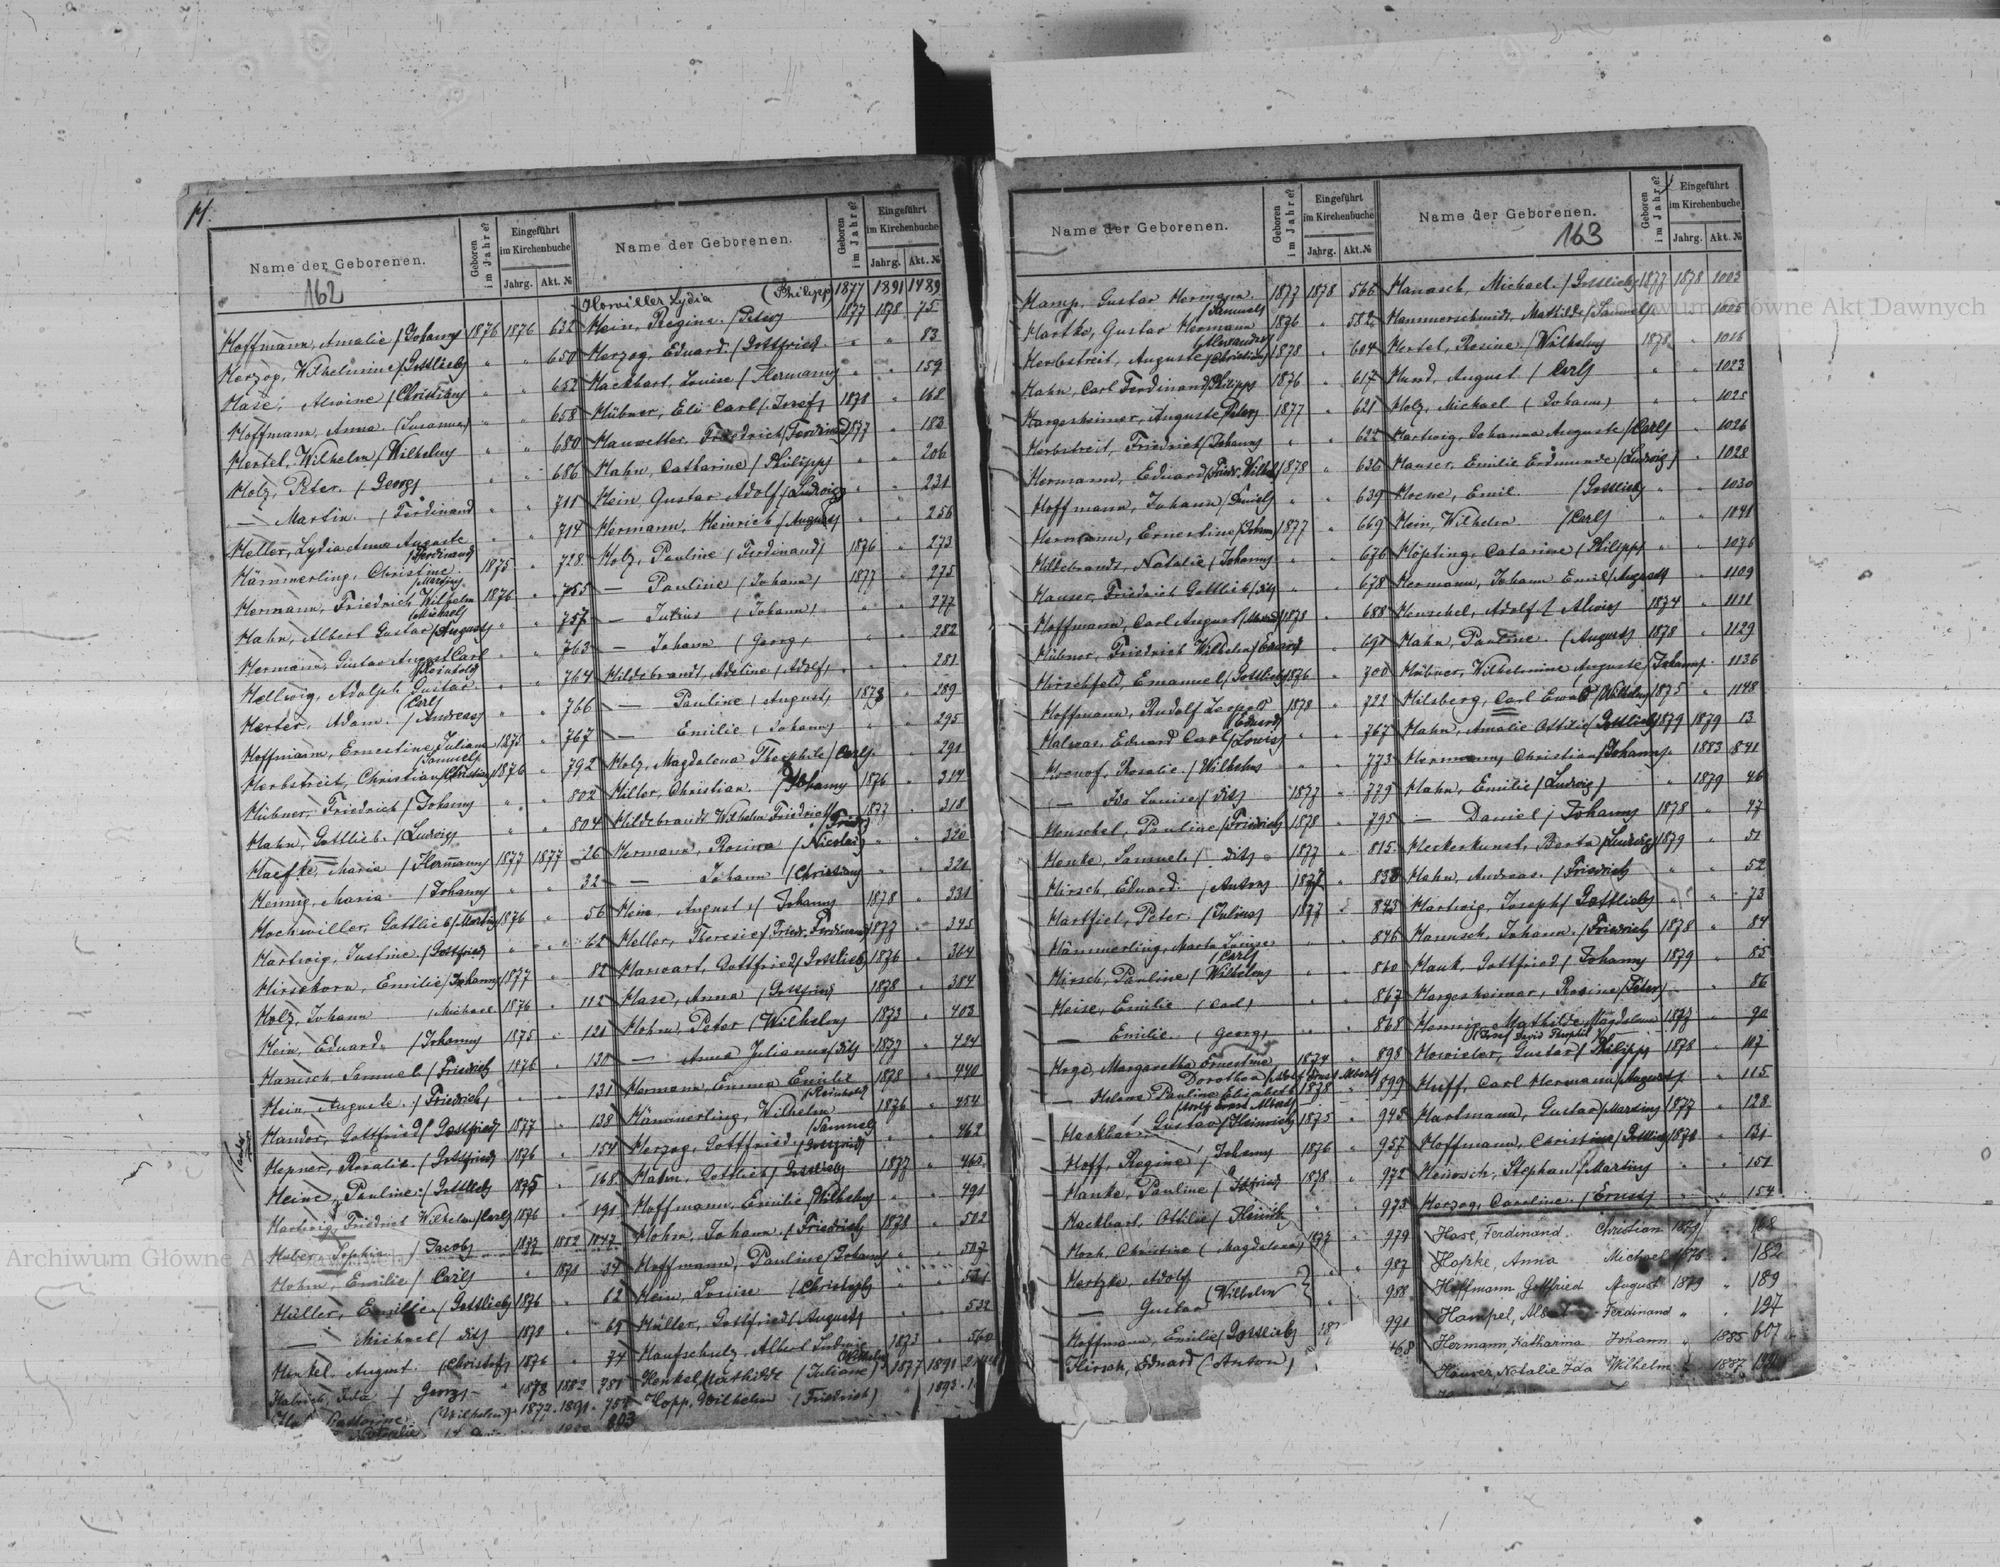 H.
Name der Geborenen.
162
Geboren im Jahre?
Eingeführt im Kirchenbuche
Jahrg. Akt. №
Hoffmann, Amalie (Johann) 1876 1876 632
Herzog, Wilhelmine (Gottlieb) " " 650
Hase, Alwine (Christian) " " 652
Hoffmann, Anna (Susanna) " " 658
Hertel, Wilhelm (Wilhelm) " " 680
Holz, Peter (Georg) " " 686
— Martin (Ferdinand) " " 711
Heller, Lydia Anna Auguste (Ferdinand) " " 714
Hämmerling, Christine (Martin) 1875 " 728
Hermann, Friedrich Wilhelm (Michael) 1876 " 755
Hahn, Albert Gustav (August) " " 757
Hermann, Gustav August Carl (Reinhold) " " 763
Hellwig, Adolph Gustav (Carl) " " 764
Herter, Adam (Andreas) " " 766
Hoffmann, Ernestine Juliana (Samuel) 1875 " 767
Herbstreit, Christian (Christian) 1876 " 792
Hübner, Friedrich (Johann) " " 802
Hahn, Gottlieb (Ludwig) " " 804
Haefke, Maria (Hermann) 1877 1877 26
Hennig, Maria (Johann) " " 32
Hochwiller, Gottlieb (Martin) 1876 " 56
Hartwig, Justine (Gottfried) " " 62
Hirsekorn, Emilie (Johann) 1877 " 82
Holz, Johann (Michael) 1876 " 112
Hein, Eduard (Johann) 1875 " 121
Hanisch, Samuel (Friedrich) 1876 " 130
Hein, Auguste (Friedrich) " " 131
Handor, Gottfried (Gottfried) 1877 " 138
Hepner, Rosalie (Gottfried) 1876 " 154
Heine, Pauline (Gottlieb) 1875 " 168
Hartwig, Friedrich Wilhelm (Carl) 1876 " 191
Huber, Sophia (Jacob) 1877 1882 1047
Hohn, Emilie (Carl) " 1878 34
Hüller, Emilie (Gottlieb) 1876 " 62
— Michael (dito) 1878 " 69
Henkel, August (Christof) 1876 " 74
(Georg) 1878 1882 781
(Wilhelm) 1877 1891 754
803
Name der Geborenen.
Geboren im Jahre?
Eingeführt im Kirchenbuche
Jahrg. Akt. №
Horwiller Lydia (Philipp) 1877 1891 1489
Hein, Regine (Peter) 1877 1878 75
Herzog, Eduard (Gottfried) " " 83
Hackbart, Louise (Hermann) " " 159
Hübner, Eli Carl (Josef) 1878 " 168
Hauvetter, Friedrich (Ferdinand) 1877 " 183
Hahn, Catharine (Philipp) " " 206
Hein, Gustav Adolf (Ludwig) " " 231
Hermann, Heinrich (August) " " 256
Holz, Pauline (Ferdinand) 1876 " 273
— Pauline (Johann) 1877 " 275
— Julius (Johann) " " 277
— Johann (Georg) " " 282
Hildebrandt, Adeline (Adolf) " " 281
— Pauline (August) 1878 " 289
— Emilie (Johann) " " 295
Holz, Magdalena Theophile (Carl) " " 291
Hiller, Christian (Johann) 1876 " 314
Hildebrandt Wilhelm Friedrich (Friedr.) 1877 " 318
Hermann, Rosina (Nicolai) " " 320
— Johann (Christian) " " 321
Hein, August (Johann) 1878 " 331
Heller, Theresie (Friedr. Ferdinand) 1877 " 345
Harwart, Gottfried (Gottlieb) 1876 " 364
Hase, Anna (Gottfried) 1878 " 384
Hohn, Peter (Wilhelm) 1873 " 403
— Anna Julianna (dito) 1877 " 424
Hermann, Emma Emilie (Reinhold) 1878 " 440
Hämmerling, Wilhelm (Samuel) 1876 " 454
Herzog, Gottfried (Gottfried) " " 462
Hahn, Gottlieb (Gottlieb) 1877 " 462
Hoffmann, Emilie (Wilhelm) " " 491
Hohn, Johann (Friedrich) 1878 " 502
Hoffmann, Pauline (Johann) " " 507
Hein, Louise (Christoph) " " 531
Hüller, Gottfried (August) " " 532
Haufschulz, Albert Ludwig (Wilhelm) 1873 " 560
Henkel, Mathilde (Juliane) 1877 1891
Hopp, Wilhelm (Friedrich) " 1893
Name der Geborenen.
Geboren im Jahre?
Eingeführt im Kirchenbuche
Jahrg. Akt. №
Hamp, Gustav Hermann (Samuel) 1877 1878 566
Hartke, Gustav Hermann (Alexander) 1876 " 582
Herbstreit, Auguste (Christian) 1878 " 604
Hahn, Carl Ferdinand (Philipp) 1876 " 617
Hargesheimer, Auguste (Peter) 1877 " 621
Herbstreit, Friedrich (Johann) " " 622
Hermann, Eduard (Friedr. Wilhelm) 1878 " 636
Hoffmann, Johann (Daniel) " " 639
Hermann, Ernestine (Johann) 1877 " 669
Hildebrandt, Natalie (Johann) " " 676
Hauser, Friedrich Gottlieb (dito) " " 678
Hoffmann, Carl August 1878 " 688
Hübner, Friedrich Wilhelm (Eduard) " " 691
Hirschfeld, Emanuel (Gottlieb) 1876 " 700
Hoffmann, Rudolf Leopold (Eduard) 1878 " 722
Halwas, Eduard Carl (Louis) " " 767
Hoenof, Rosalie (Wilhelm) " " 773
— Ida Louise (dito) 1877 " 779
Henschel, Pauline (Friedrich) 1878 " 795
Henke, Samuel (dito) 1877 " 815
Hirsch, Eduard (Anton) 1877 " 838
Hartfiel, Peter (Julius) 1877 " 843
Hämmerling, Marta Louise (Carl) " " 846
Hirsch, Pauline (Wilhelm) " " 860
Heise, Emilie (Carl) " " 867
— Emilie (Georg) " " 868
Hoge, Margaretha Ernestine Dorothea (Adolf Ernst Albert) 1874 " 898
— Helene Pauline Elisabeth (Adolf Ernst Albert) 1878 " 899
Hackbart, Gustav (Heinrich) 1875 " 948
Hoff, Regine (Johann) 1876 " 957
Hanke, Pauline (Gottfried) 1878 " 972
Hackbart, Ottilie (Heinrich) " " 978
Hoch, Christine (Magdalena) 1877 " 979
Hertzke, Adolf " " 987
— Gustav (Wilhelm) " " 988
Hoffmann, Emilie (Gottlieb) 991
Hirsch, Eduard (Anton) 468
Name der Geborenen.
163
Geboren im Jahre?
Eingeführt im Kirchenbuche
Jahrg. Akt. №
Hanasch, Michael (Gottlieb) 1877 1878 1003
Hammerschmidt, Mathilde (Samuel) " " 1005
Hertel, Rosine (Wilhelm) 1878 " 1016
Hund, August (Carl) " " 1023
Holz, Michael (Johann) " " 1025
Hartwig, Johanna Auguste (Carl) " " 1026
Hauser, Emilie Erdmunde (Ludwig) " " 1028
Hoene, Emil (Gottlieb) " " 1030
Hein, Wilhelm (Carl) " " 1041
Höpting, Catarine (Philipp) " " 1076
Hermann, Johann Emil (August) " " 1109
Henschel, Adolf (Alwin) 1874 " 1111
Hahn, Pauline (August) 1878 " 1129
Hübner, Wilhelmine Auguste (Johann) " " 1136
Hilsberg, Carl Ewald (Wilhelm) 1875 " 1148
Hahn, Amalie Ottilie (Gottlieb) 1879 1879 13
Hermann, Christian (Johann) " 1883 841
Hahn, Emilie (Ludwig) " 1879 46
— Daniel (Johann) 1878 " 47
Heckerkunst, Berta (Ludwig) 1879 " 51
Hahn, Andreas (Friedrich) " " 52
Hartwig, Joseph (Gottlieb) " " 73
Hanusch, Johann (Friedrich) 1878 " 84
Hauk, Gottfried (Johann) 1879 " 85
Hargesheimer, Rosine (Peter) " " 86
Hennig, Mathilde Magdalena (Josef David Theophil) 1877 " 90
Howieler, Gustav (Philipp) 1878 " 107
Huff, Carl Hermann (August) " " 115
Hartmann, Gustav (Martin) 1877 " 128
Hoffmann, Christine (Gottlieb) 1878 " 131
Heirosch, Stephan (Martin) " " 151
Herzog, Caroline (Ernst) " " 154
Hase, Ferdinand Christian 1879 " 168
Hapke, Anna Michael 1878 " 182
Hoffmann, Gottfried August 1879 " 189
Hampel, Ferdinand " " 197
Hermann, Katharina Johann " 1885 607
Hauser, Natalie Ida Wilhelm " 1887
Archiwum Główne Akt Dawnych
Archiwum Główne Akt Dawnych